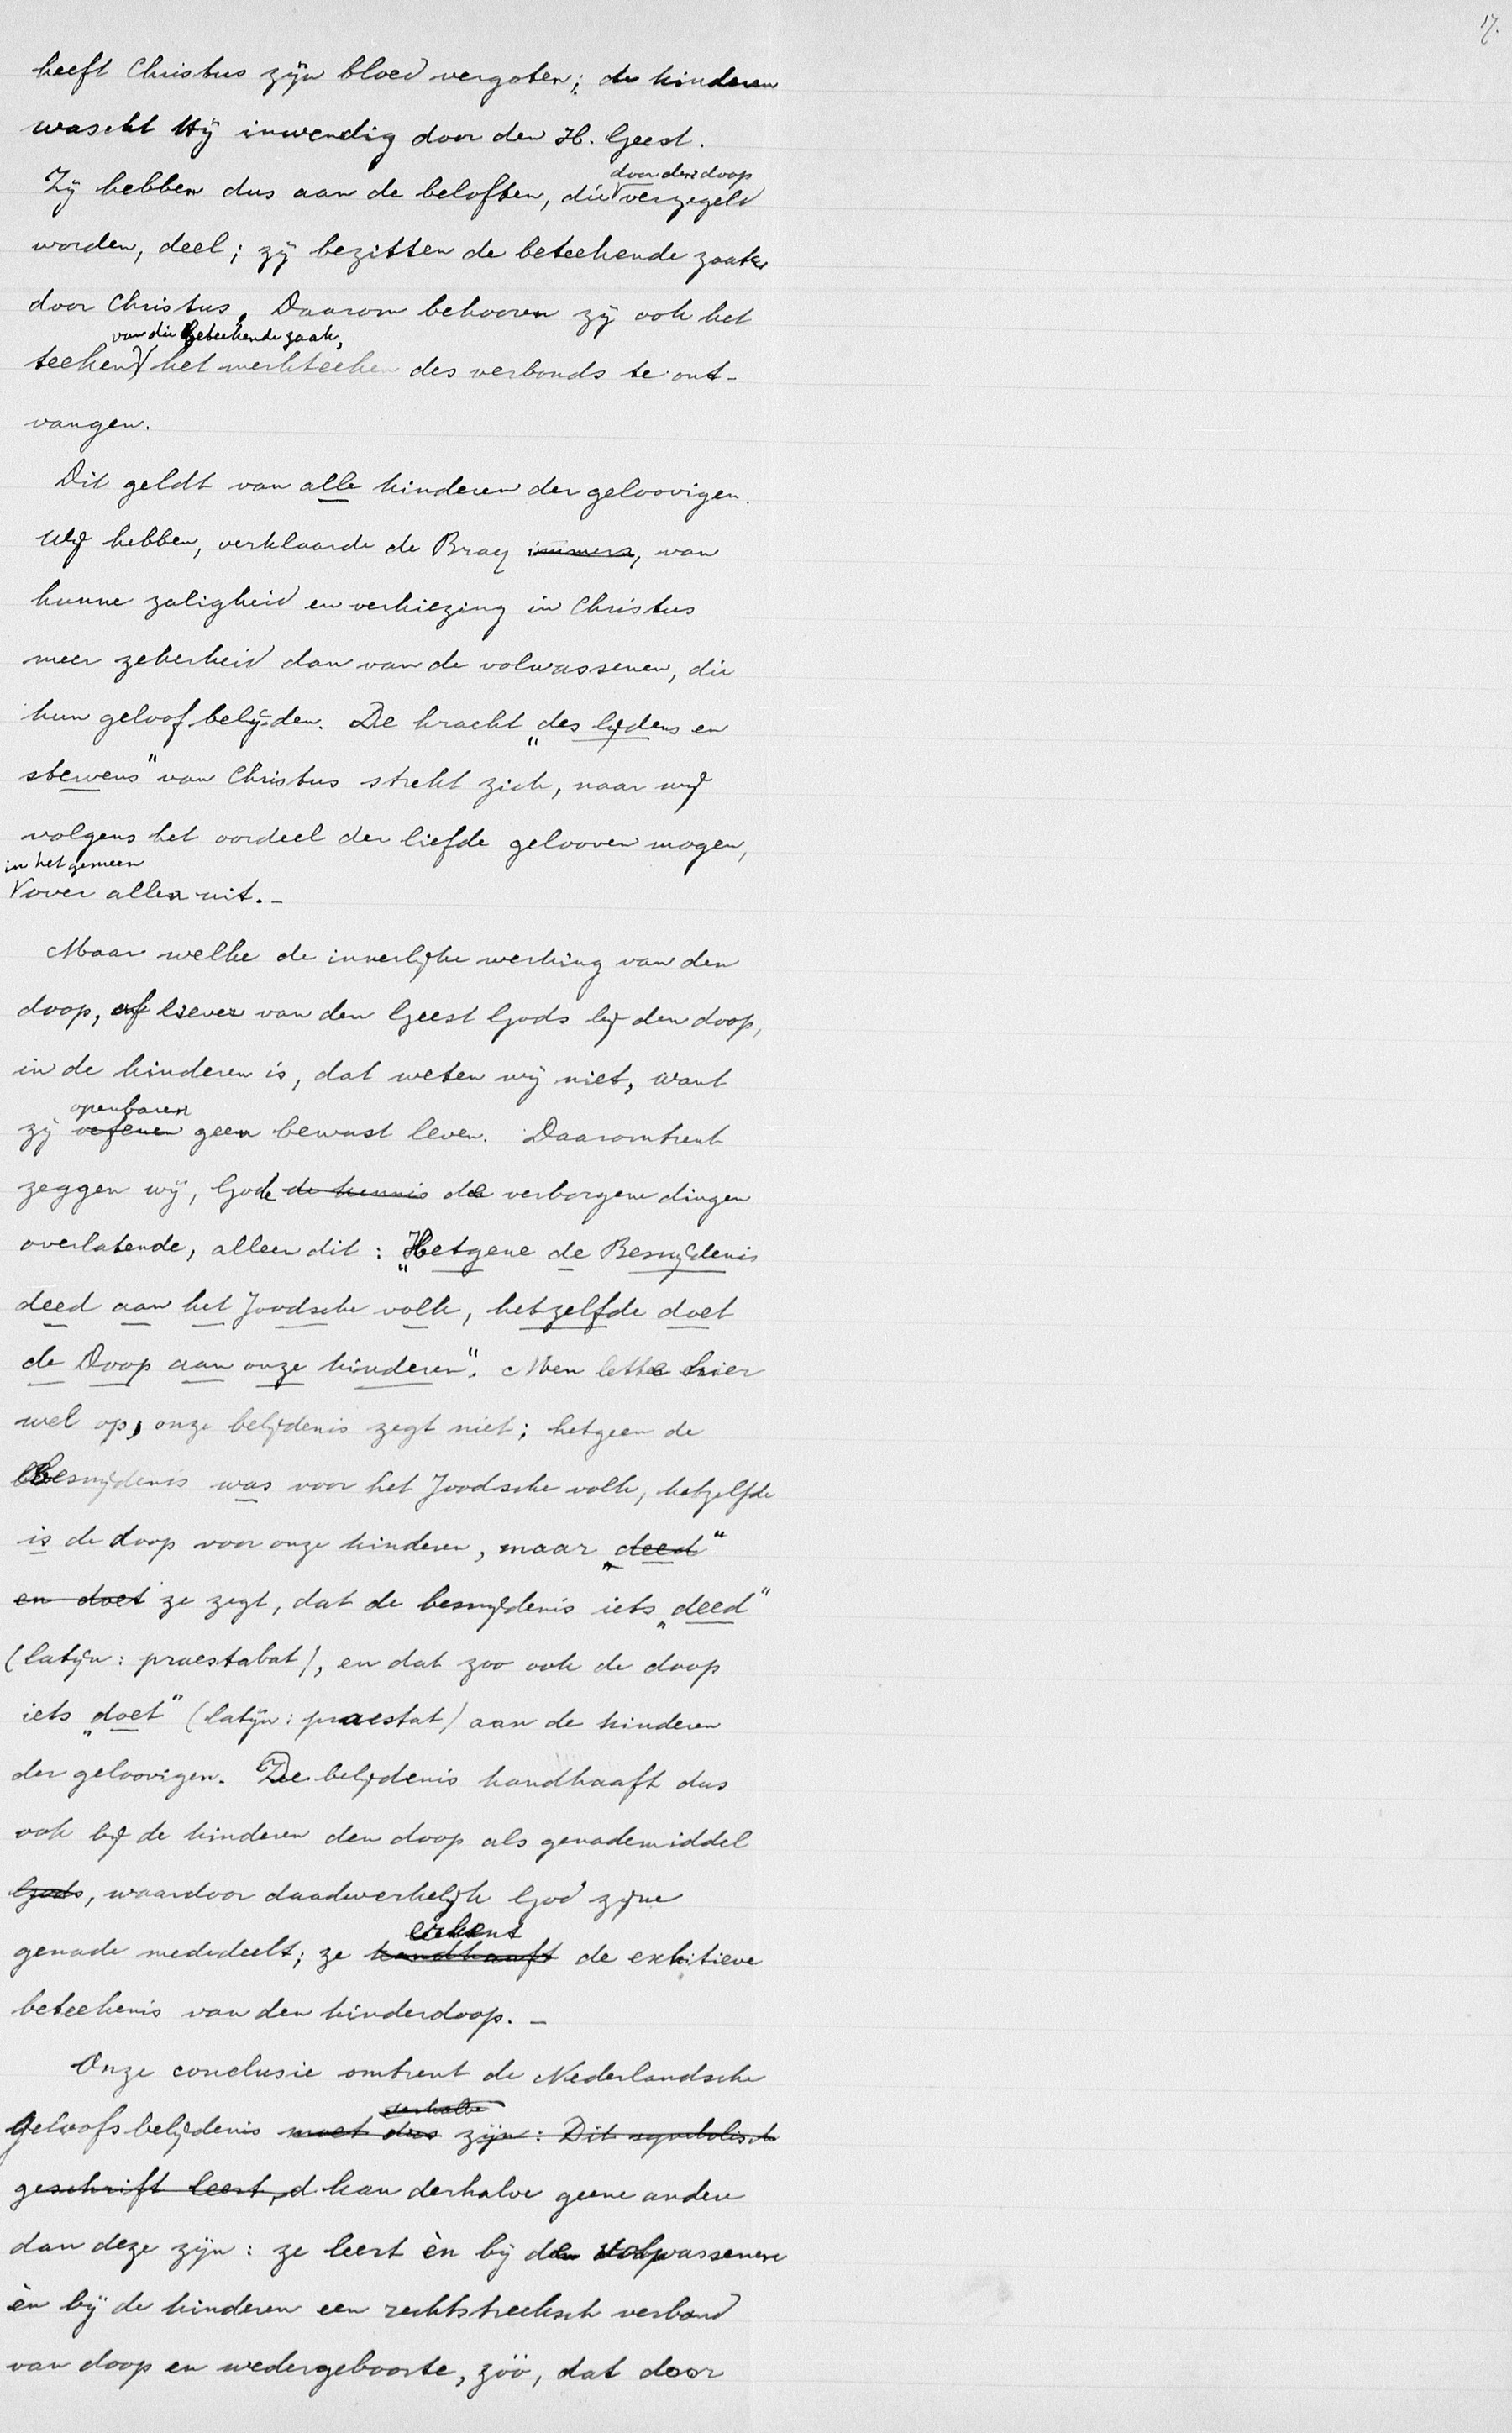 17.
heeft Christus zijn bloed vergoten; de kinderen
wascht Hij inwendig door den H. Geest.
door den doop
Zij hebben dus aan de beloften, die verzegeld
worden, deel; zij bezitten de beteekende zaak
door Christus. Daarom behooren zij ook het
van die beteekende zaak,
teeken, het merkteeken des verbonds te ont-
vangen.
Dit geldt van alle kinderen der geloovigen.
Wij hebben, verklaarde de Bray immers, van
hunne zaligheid en verkiezing in Christus
meer zekerheid dan van de volwassenen, die
hun geloof belijden. De kracht „des lijdens en
stervens" van Christus strekt zich, naar wij
volgens het oordeel der liefde gelooven mogen,
in het gemeen
over allen uit. -
Maar welke de innerlijke werking van den
doop, of liever van den Geest Gods bij den doop,
in de kinderen is, dat weten wij niet, want
openbaren
zij oefenen geen bewust leven. Daaromtrent
zeggen wij, Gode de kennis de verborgene dingen
overlatende, alleen dit: „Hetgene de Besnijdenis
deed aan het Joodsche volk, hetzelfde doet
de Doop aan onze kinderen". Men lette hier
wel op, onze belijdenis zegt niet; hetgeen de
Besnijdenis was voor het Joodsche volk, hetzelfde
is de doop voor onze kinderen, maar „deed"
en doet ze zegt, dat de besnijdenis iets „deed"
(latijn: praestabat), en dat zoo ook de doop
iets „doet" (latijn: praestat) aan de kinderen
der geloovigen. De belijdenis handhaaft dus
ook bij de kinderen den doop als genademiddel
Gods, waardoor daadwerkelijk God zijne
erkent
genade mededeelt; ze handhaaft de exhitieve
beteekenis van den kinderdoop. -
Onze conclusie omtrent de Nederlandsche
derhalve
Geloofsbelijdenis moet dus zijn: Dit symbolisch
geschrift leert, d kan derhalve geene andere
dan deze zijn: ze leert èn bij de volwassenen
èn bij de kinderen een rechtstreeksch verband
van doop en wedergeboorte, zóó, dat door